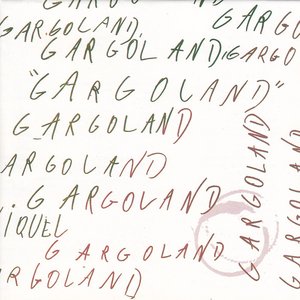 GARGO
GAR.GOLAND.
GARGOLAND.
GARGO
"GARGOLAND"
G_ARGOLAND
ARGOLAND
. G ARGOLAND
IQUEL
G ARGOLAND
RGOLAND
GARGOLAND
GARGOLAND